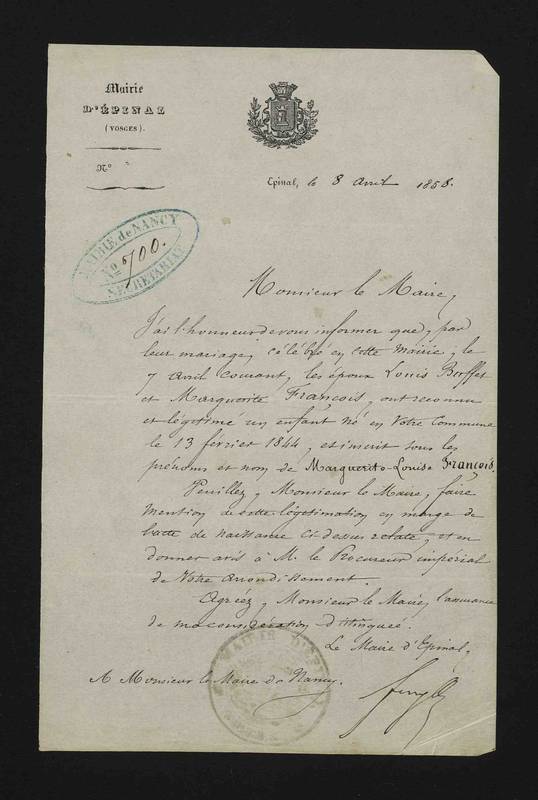 Mairie
D'ÉPINAL
(VOSGES).
N°
Epinal, le 8 Avril 1858.
MAIRIE de NANCY
No 5700.
SECRÉTARIAT
Monsieur le Maire,
J'ai l'honneur de vous informer que, par
leur mariage, célébré en cette Mairie, le
7 Avril Courant, les époux Louis Buffet
et Marguerite François, ont reconnu
et légitimé un enfant né en Votre Commune
le 13 février 1844, et inscrit sous les
prénoms et nom de Marguerite-Louise François.
Veuillez, Monsieur le Maire, faire
Mention de cette légitimation en marge de
l'acte de naissance ci-dessus relaté, et en
donner avis à M. le Procureur impérial
de Votre arrondissement.
Agréez, Monsieur le Maire, l'assurance
de ma considération distinguée.
Le Maire d'Epinal,
A Monsieur le Maire de Nancy.
MAIRIE D'EPINAL